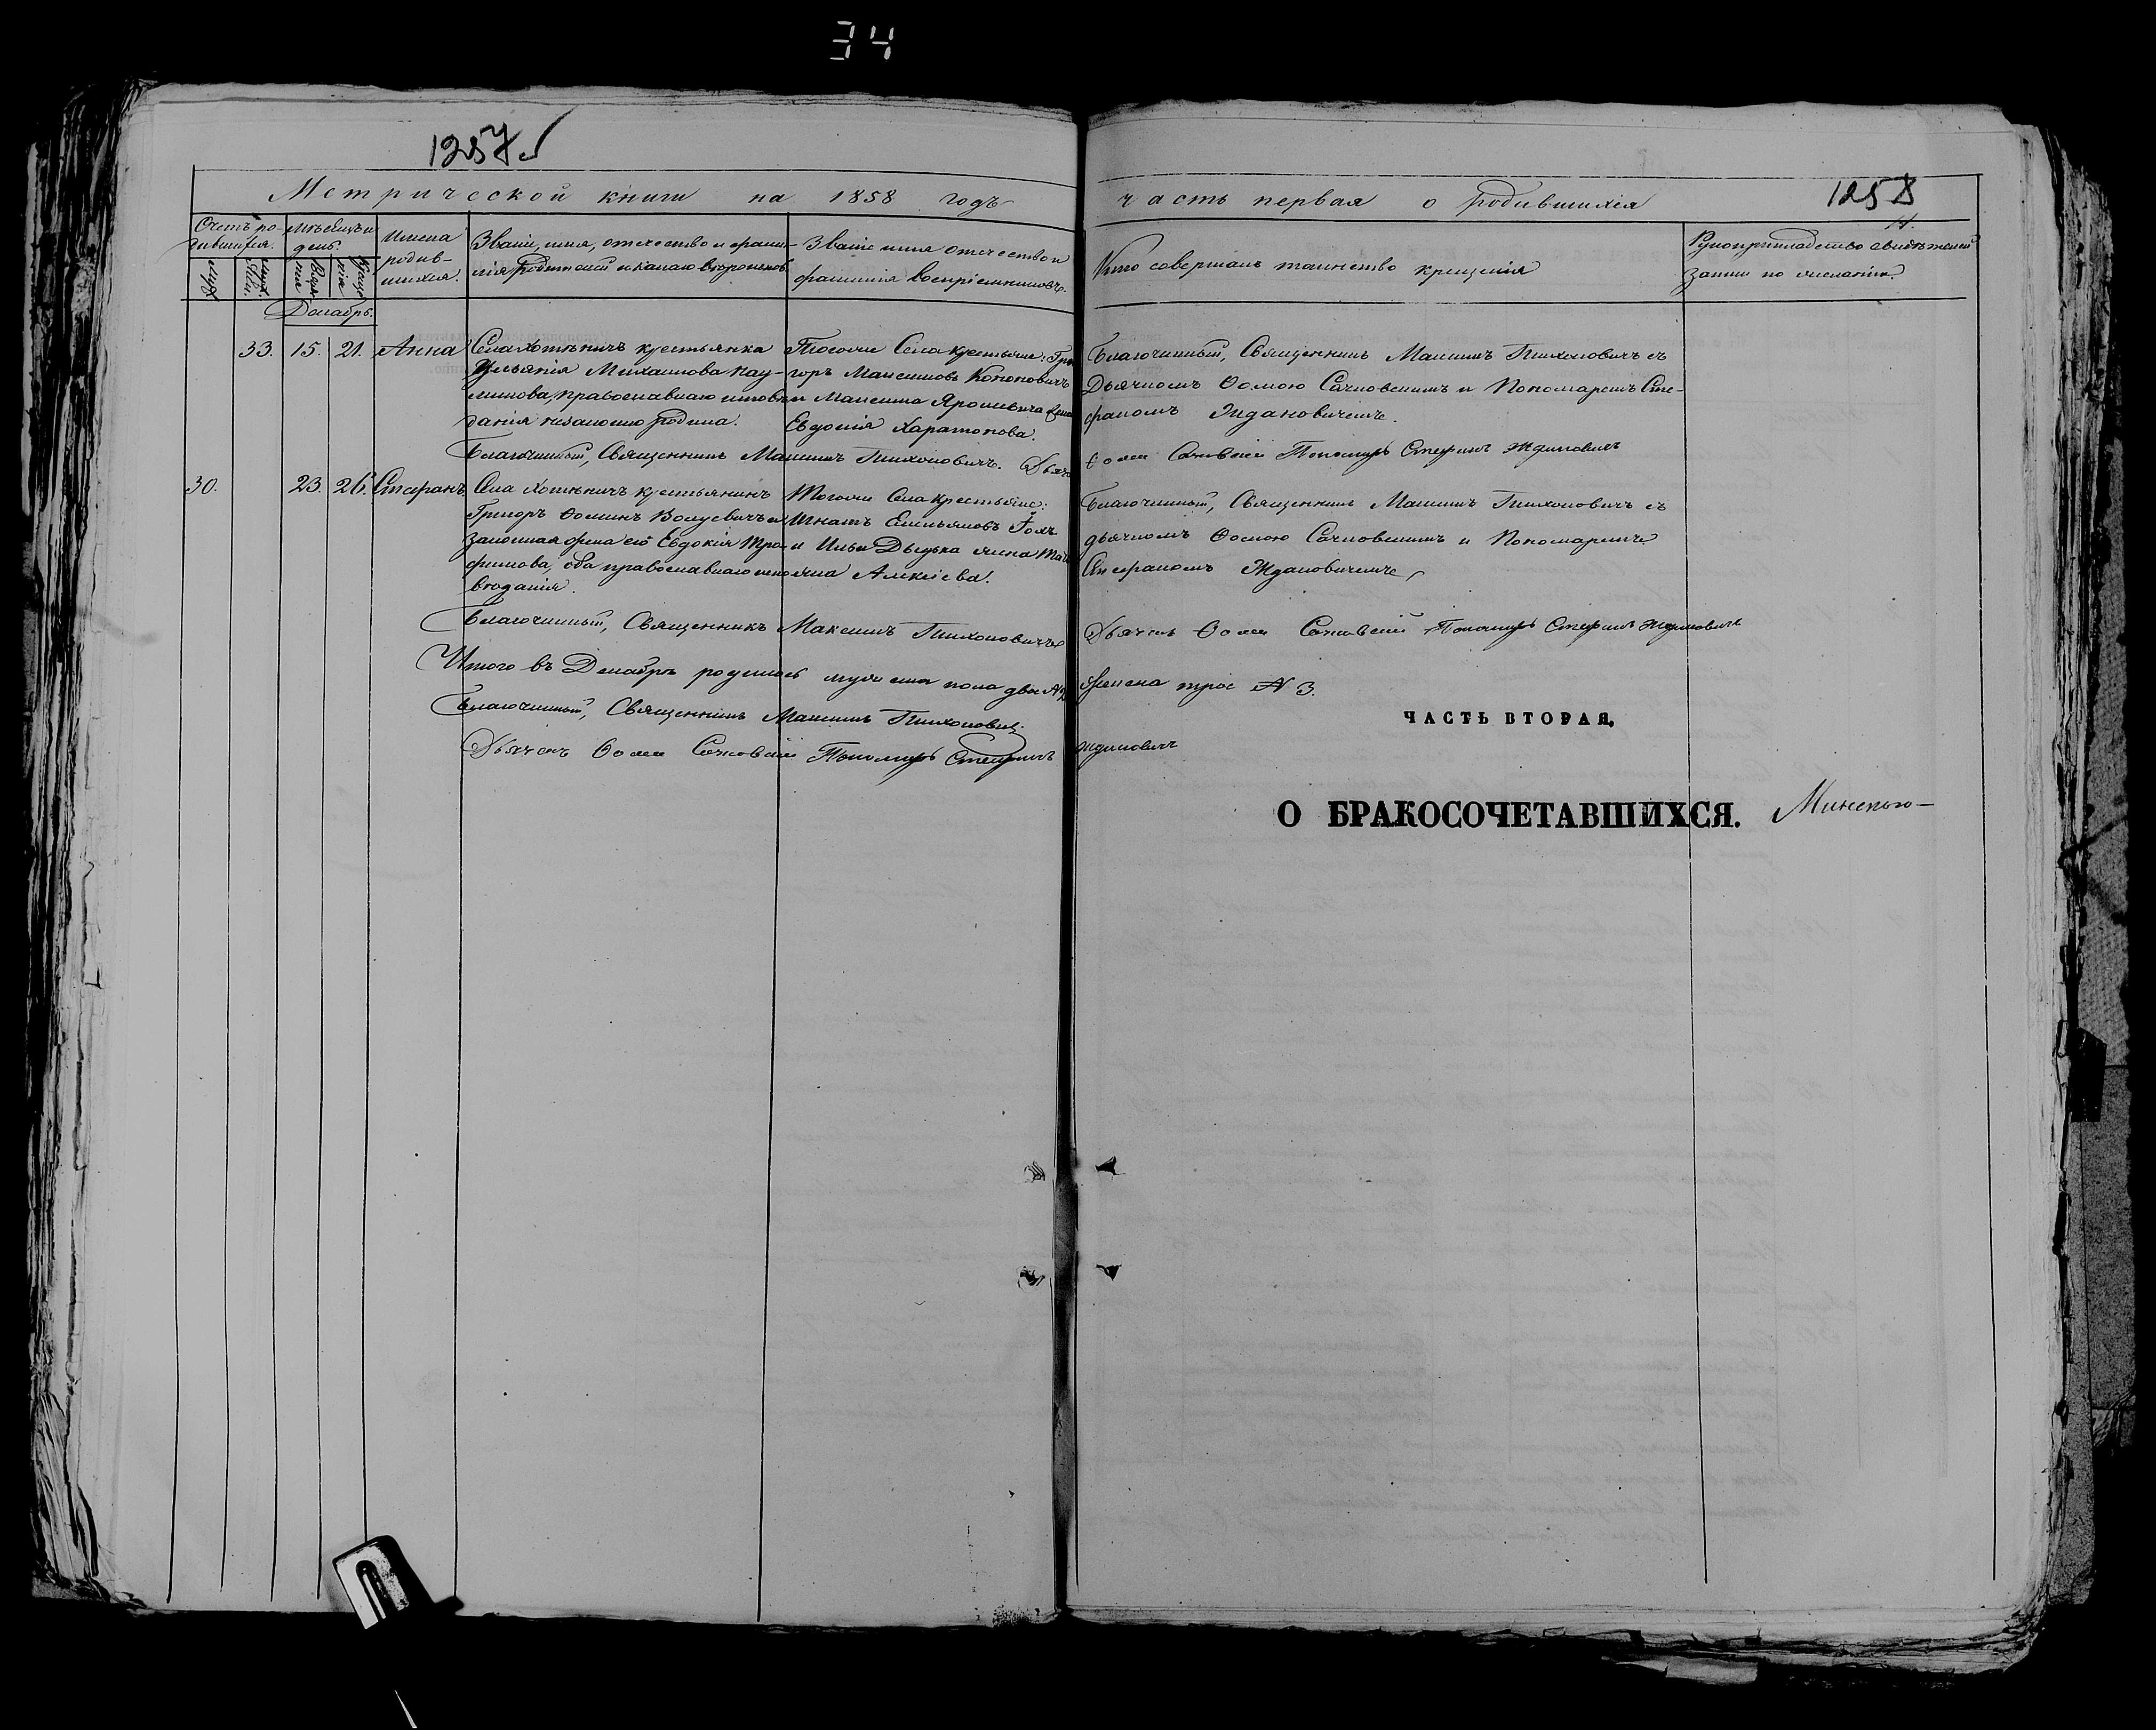 34
1257
1258
Метрической книги на 1858 годъ часть первая о родившихся
Счетъ ро-
дившихся.
Мѣсяцъ и
день.
Имена
родив-
шихся.
Званіе, имя, отечество и фами-
лія родителей и какого вѣроисповѣд.
Званіе имя отечество и
фамилія воспріемниковъ.
Кто совершалъ таинство крещенія
Рукоприкладство свидѣтелей
записи по желанію.
Декабрь.
33. 15. 21. Анна
Села Хотѣничъ крестьянка
Ульянія Михайлова Нау-
мчикова, православнаго исповѣ-
данія незаконно родила.
Тогоже Села крестьяне: Гри-
горъ Максимовъ Кононовичъ
и Максима Ярошевича жена
Евдокія Харитонова.
Благочинный, Священникъ Максимъ Тихоновичъ съ
Дьячкомъ Ѳомою Сачковскимъ и Пономаремъ Сте-
фаномъ Ждановичемъ.
Благочинный, Священникъ Максимъ Тихоновичъ. Дьячекъ Ѳома Сачковскій Пономарь Стефанъ Ждановичъ
30. 23. 26. Стефанъ
Села Хотѣничъ крестьянинъ
Григоръ Ѳоминъ Волуевичъ и
законная жена его Евдокія Тро-
фимова, оба православнаго испо-
вѣданія.
Тогоже Села крестьяне:
Игнатъ Емельяновъ
и Ильи Дыдька жена
Алексіева.
Благочинный, Священникъ Максимъ Тихоновичъ съ
дьячкомъ Ѳомою Сачковскимъ и Пономаремъ
Стефаномъ Ждановичемъ
Благочинный, Священникъ Максимъ Тихоновичъ
Дьячекъ Ѳома Сачковскій Пономарь Стефанъ Ждановичъ
Итого въ Декабрѣ родилось мужеска пола двое №2 женска трое № 3.
Благочинный, Священникъ Максимъ Тихоновичъ
Дьячекъ Ѳома Сачковскій Пономарь Стефанъ Ждановичъ
ЧАСТЬ ВТОРАЯ,
О БРАКОСОЧЕТАВШИХСЯ.